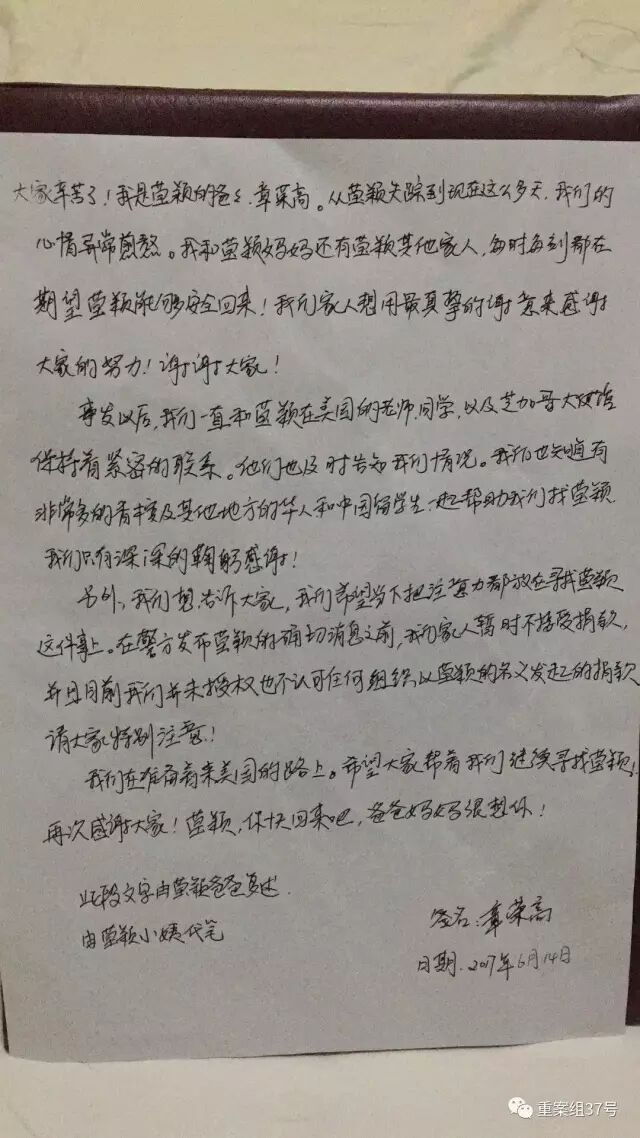 大家辛苦了！我是莹颖的爸爸，章荣高。从莹颖失踪到现在这么多天，我们的
心情异常煎熬。我和莹颖妈妈还有莹颖其他家人，每时每刻都在
期望莹颖能够安全回来！我们家人想用最真挚的谢意来感谢
大家的努力！谢谢大家！
事发以后，我们一直和莹颖在美国的老师、同学，以及芝加哥大使馆
保持着紧密的联系。他们也及时告知我们情况。我们也知道有
非常多的香槟及其他地方的华人和中国留学生一起帮助我们找莹颖
我们只有深深的鞠躬感谢！
另外，我们想告诉大家，我们希望当下把注意力都放在寻找莹颖
这件事上。在警方发布莹颖的确切消息之前，我们家人暂时不接受捐款，
并且目前我们并未授权也不认可任何组织以莹颖的名义发起的捐款
请大家特别注意！
我们在准备着来美国的路上。希望大家帮着我们继续寻找莹颖！
再次感谢大家！莹颖，你快回来吧，爸爸妈妈很想你！
此段文字由莹颖爸爸复述.
由莹颖小姨代笔
签名：章荣高
日期.2017年6月14日
重案组37号